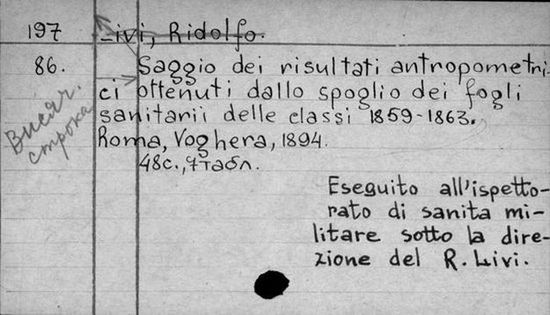 197 Livi, Ridolfo.
86. Saggio dei risultati antropometri-
ci ottenuti dallo spoglio dei fogli
sanitarii delle classi 1859-1863.
Roma, Voghera, 1894.
48с., 4табл.
Висяч.
строка
Eseguito all'ispetto-
rato di sanita mi-
litare sotto la dire-
zione del R. Livi.